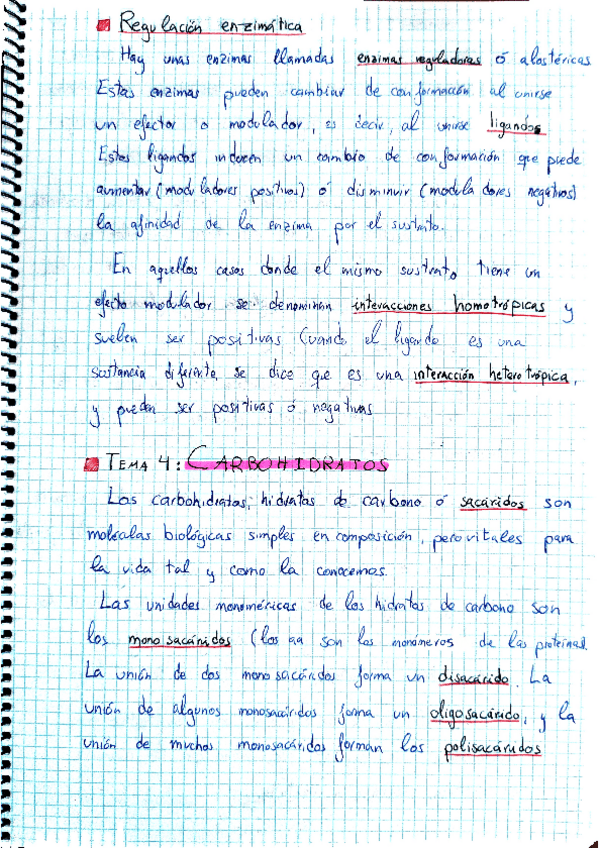 Regulación enzimática
Hay unas enzimas llamadas enzimas reguladoras ó alostéricas
Estas enzimas pueden cambiar de conformación al unirse
un efector o modulador, es decir, al unirse ligandos
Estos ligandos inducen un cambio de conformación que puede
aumentar (moduladores positivos) ó disminuir (moduladores negativos)
la afinidad de la enzima por el sustrato.
En aquellos casos donde el mismo sustrato tiene un
efecto modulador se denominan interacciones homotrópicas y
suelen ser positivas Cuando el ligando es una
sustancia diferente, se dice que es una interacción heterotrópica,
y pueden ser positivas ó negativas
TEMA 4: CARBOHIDRATOS
Los carbohidratos, hidratos de carbono ó sacáridos son
moléculas biológicas simples en composición, pero vitales para
la vida tal y como la conocemos.
Las unidades monoméricas de los hidratos de carbono son
los monosacáridos (los aa son los monómeros de las proteínas.
La unión de dos monosacáridos forma un disacárido. La
unión de algunos monosacáridos forma un oligosacárido, y la
unión de muchos monosacáridos forman los polisacáridos